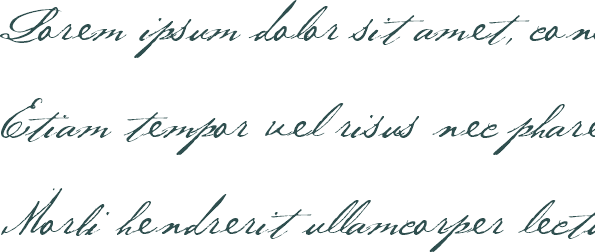 Lorem ipsum dolor sit amet, con
Etiam tempor vel risus nec phare
Morbi hendrerit ullamcorper lectu